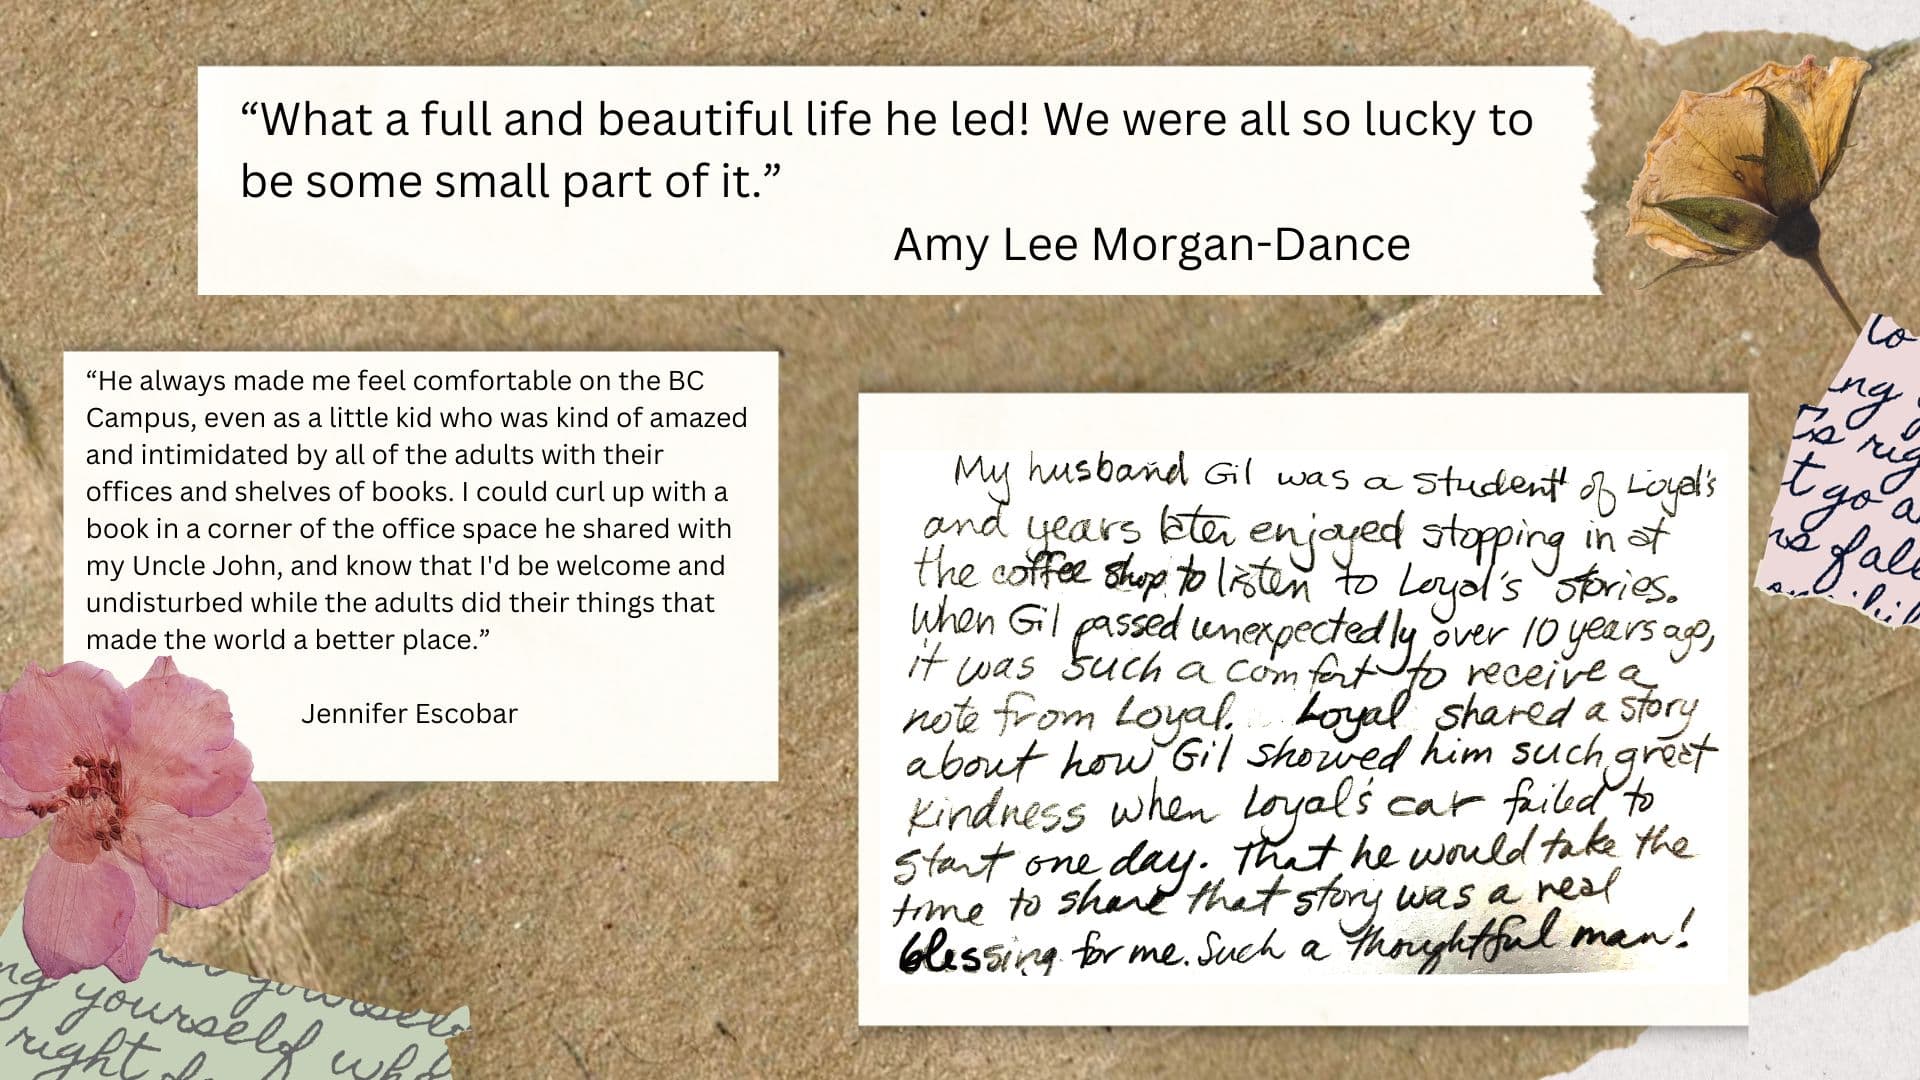 “What a full and beautiful life he led! We were all so lucky to
be some small part of it.”
Amy Lee Morgan-Dance
“He always made me feel comfortable on the BC
Campus, even as a little kid who was kind of amazed
and intimidated by all of the adults with their
offices and shelves of books. I could curl up with a
book in a corner of the office space he shared with
my Uncle John, and know that I'd be welcome and
undisturbed while the adults did their things that
made the world a better place.”
Jennifer Escobar
My husband Gil was a student of Loyal's
and years later enjoyed stopping in at
the coffee shop to listen to Loyal's stories.
When Gil passed unexpectedly over 10 years ago,
it was such a comfort to receive a
note from Loyal. Loyal shared a story
about how Gil showed him such great
kindness when Loyal's car failed to
start one day. That he would take the
time to share that story was a real
blessing for me. Such a thoughtful man!
to
ng
rig
t go a
fall
yourself
ng yourself who
right